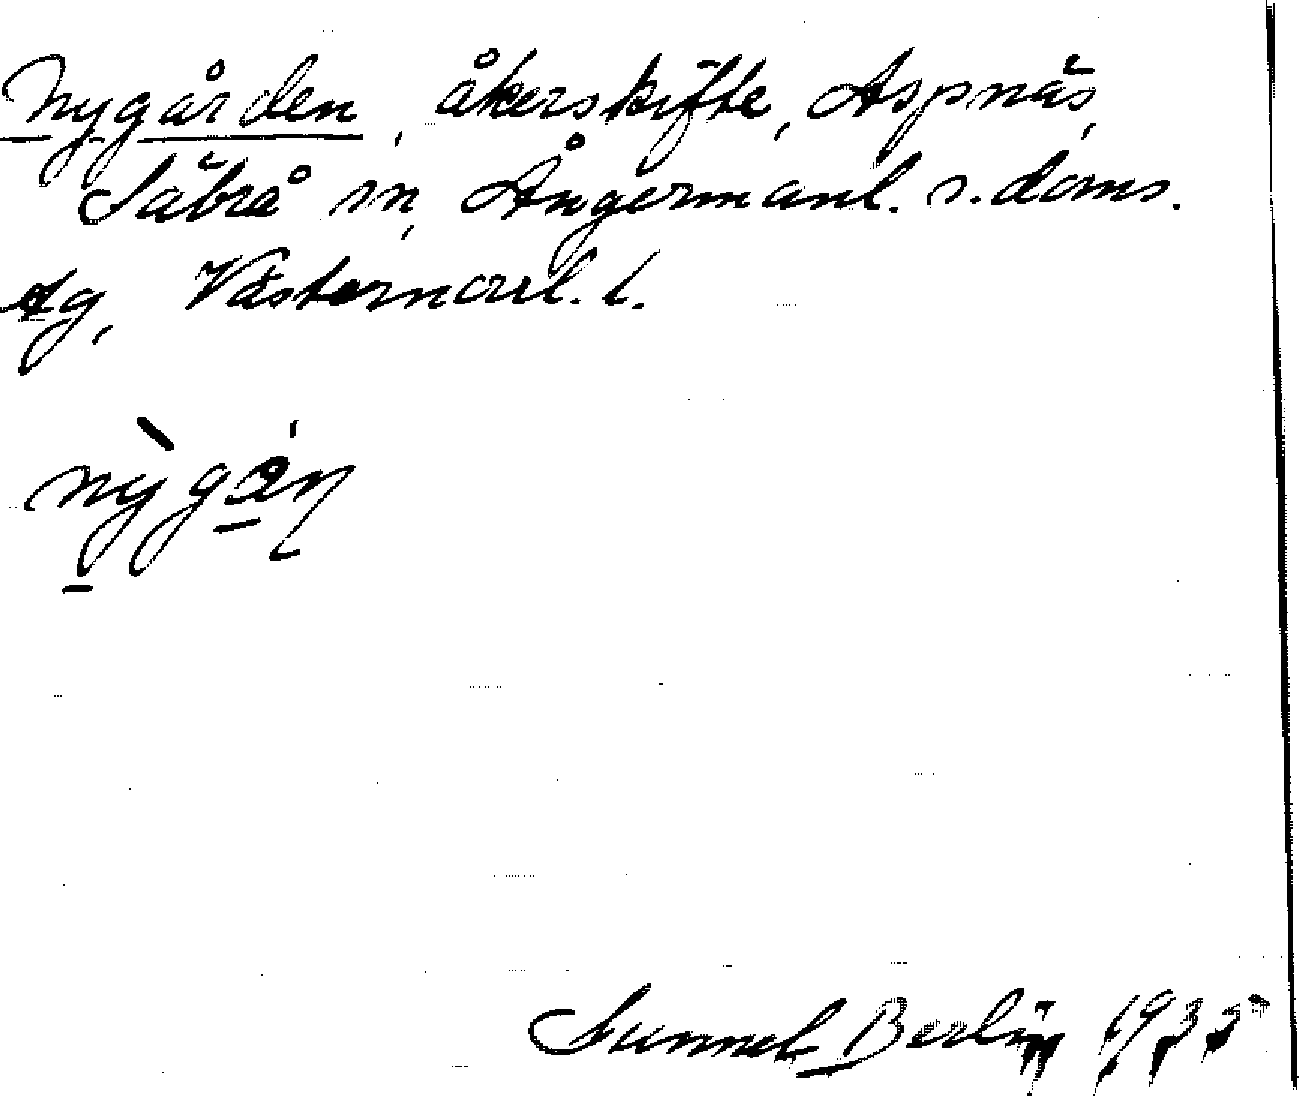 Nygården, åkerskifte, Aspnäs,
Säbrå sn, Ångermanl. s. doms.
Ag, Västernorrl. l.
nỳgán
Gunnel Berlin 1935